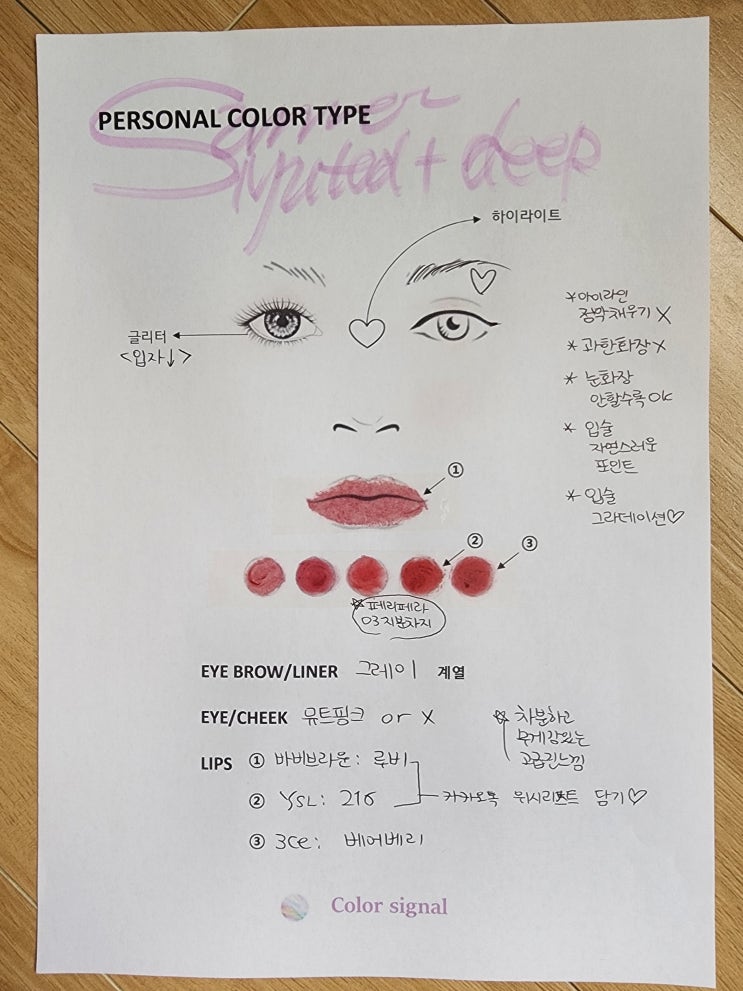 PERSONAL COLOR TYPE
Summer
Muted + deep
하이라이트
글리터
<입자↓>
*아이라인
점막채우기 X
* 과한화장 X
* 눈화장
안할수록 OK
* 입술
자연스러운
포인트
* 입술
그라데이션♡
①
② ③
☆ 페리페라
03 지분차지
EYE BROW/LINER 그레이 계열
EYE/CHEEK 뮤트핑크 or X
☆ 차분하고
무게감있는
고급진느낌
LIPS ① 바비브라운: 루비
② YSL: 216
카카오톡 위시리스트 담기♡
③ 3CE: 베어베리
Color signal